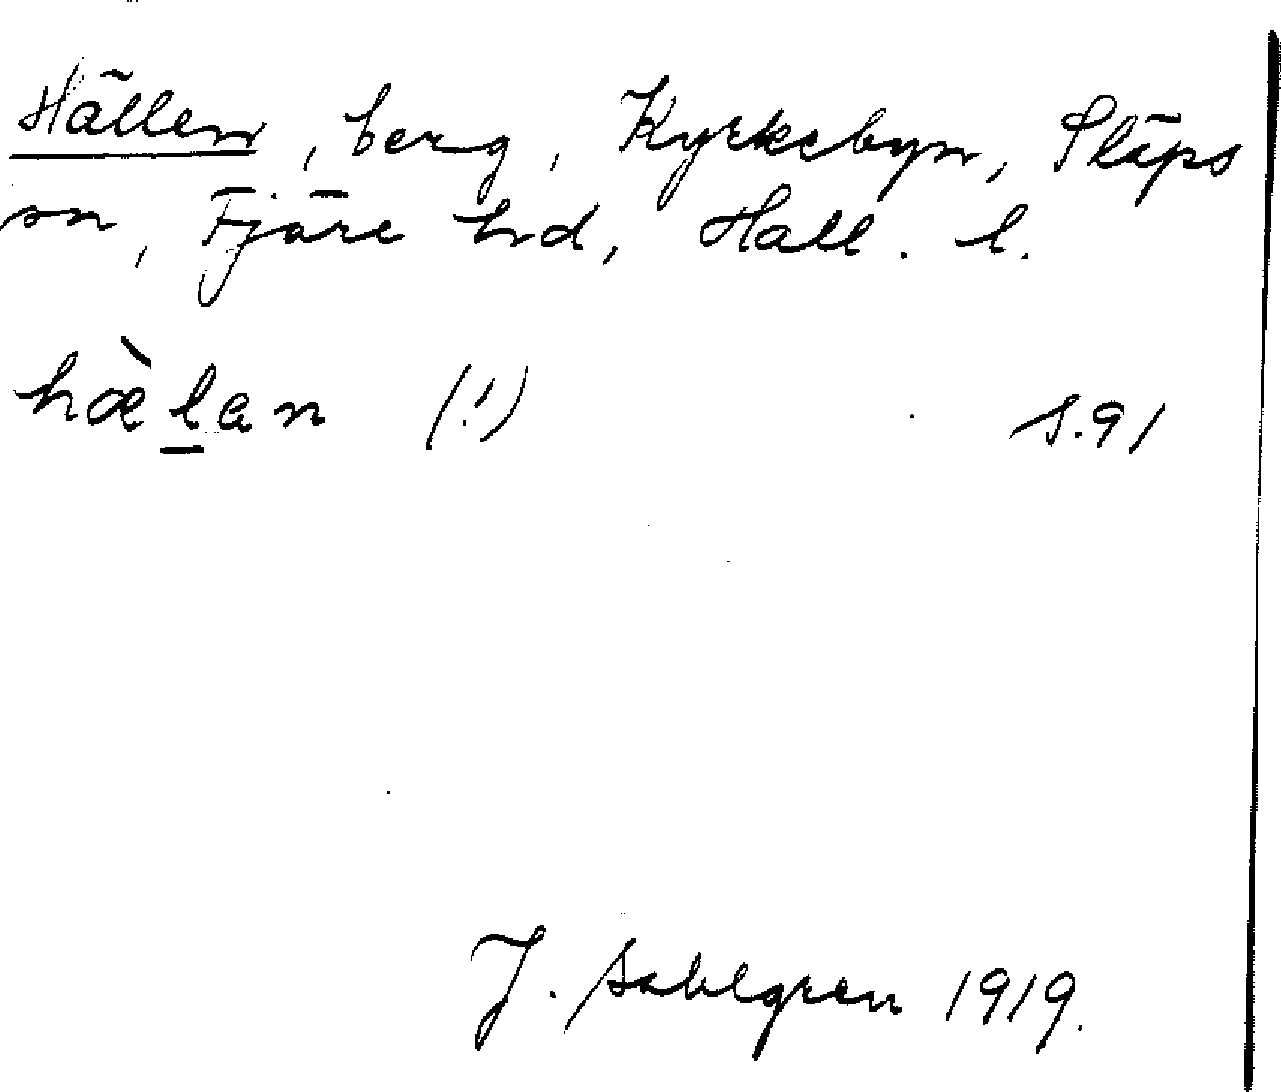 Hällen, berg, Kyrkebyn, Släps
sn, Fjäre hd, Hall. l.
hæ̀l̲an (!) S.91
J. Sahlgren 1919.